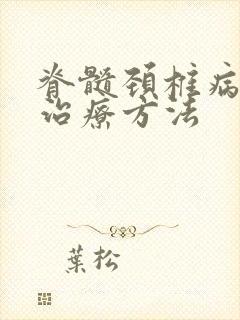 脊髓颈椎病
治療方法
葉松